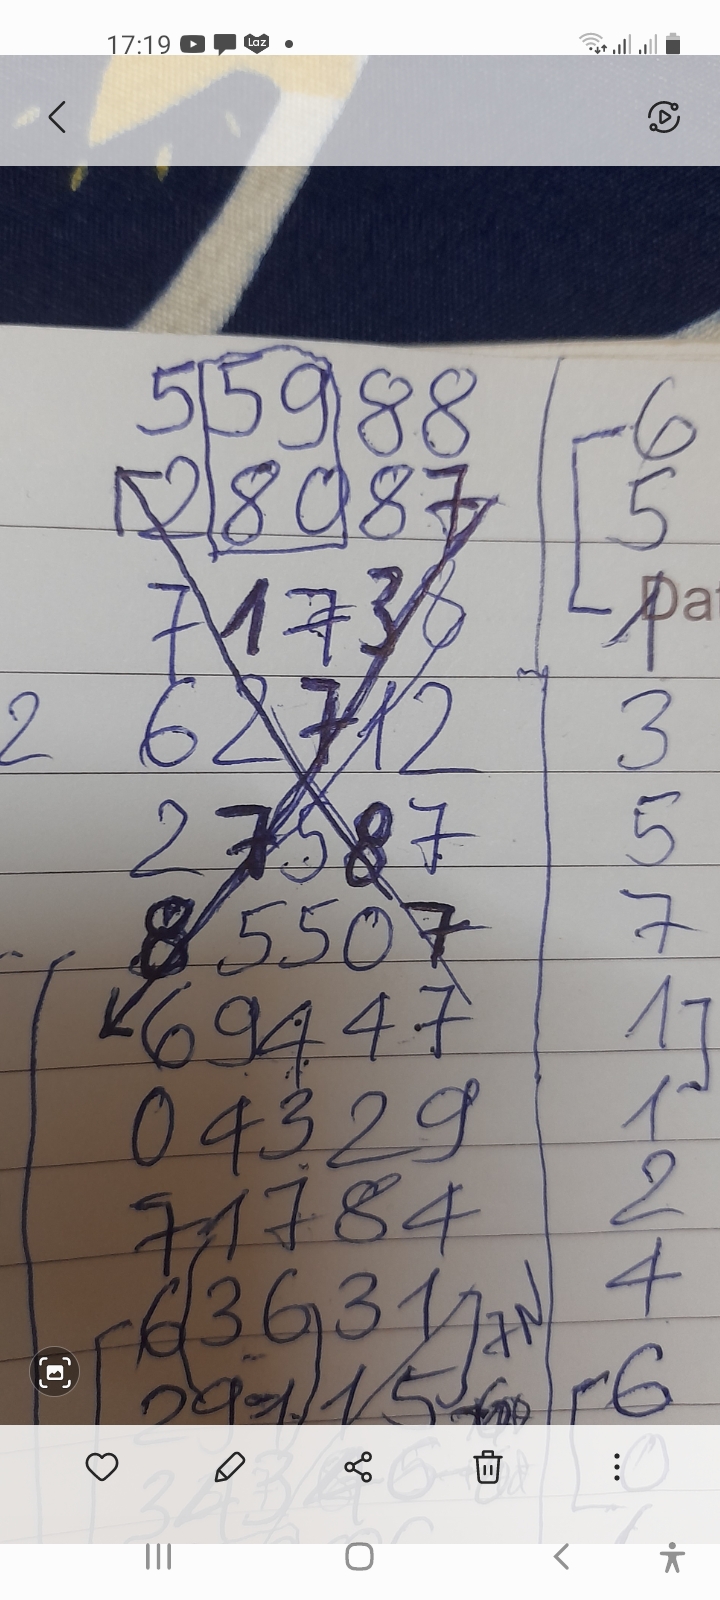 17:19
55988 6
28087 5
71738 1
Da
2 62712 3
27587 5
85507 7
69447 1
04329 1
71784 2
63631 4
6